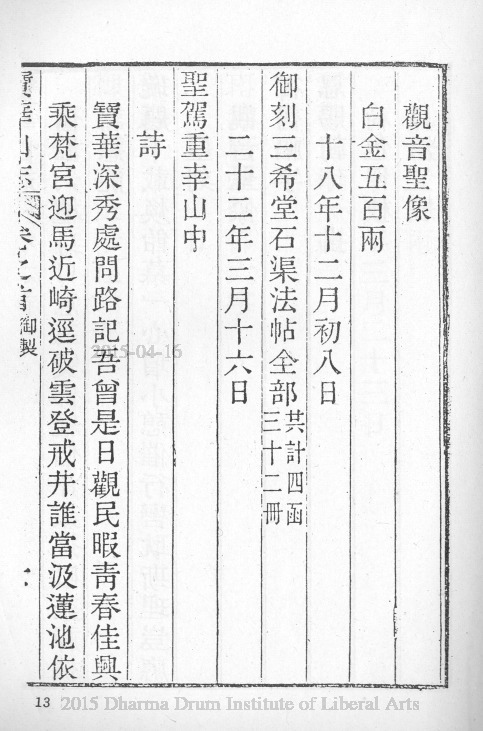 觀音聖像
白金五百兩
十八年十二月初八日
御刻三希堂石渠法帖全部共計四函三十二冊
二十二年三月十六日
聖駕重幸山中
詩
寶華深秀處問路記吾曾是日觀民暇青春佳興
乘梵宮迎馬近崎逕破雲登戒井誰當汲蓮池依
寶華山志 卷之首 御製
2015-04-16
13 2015 Dharma Drum Institute of Liberal Arts